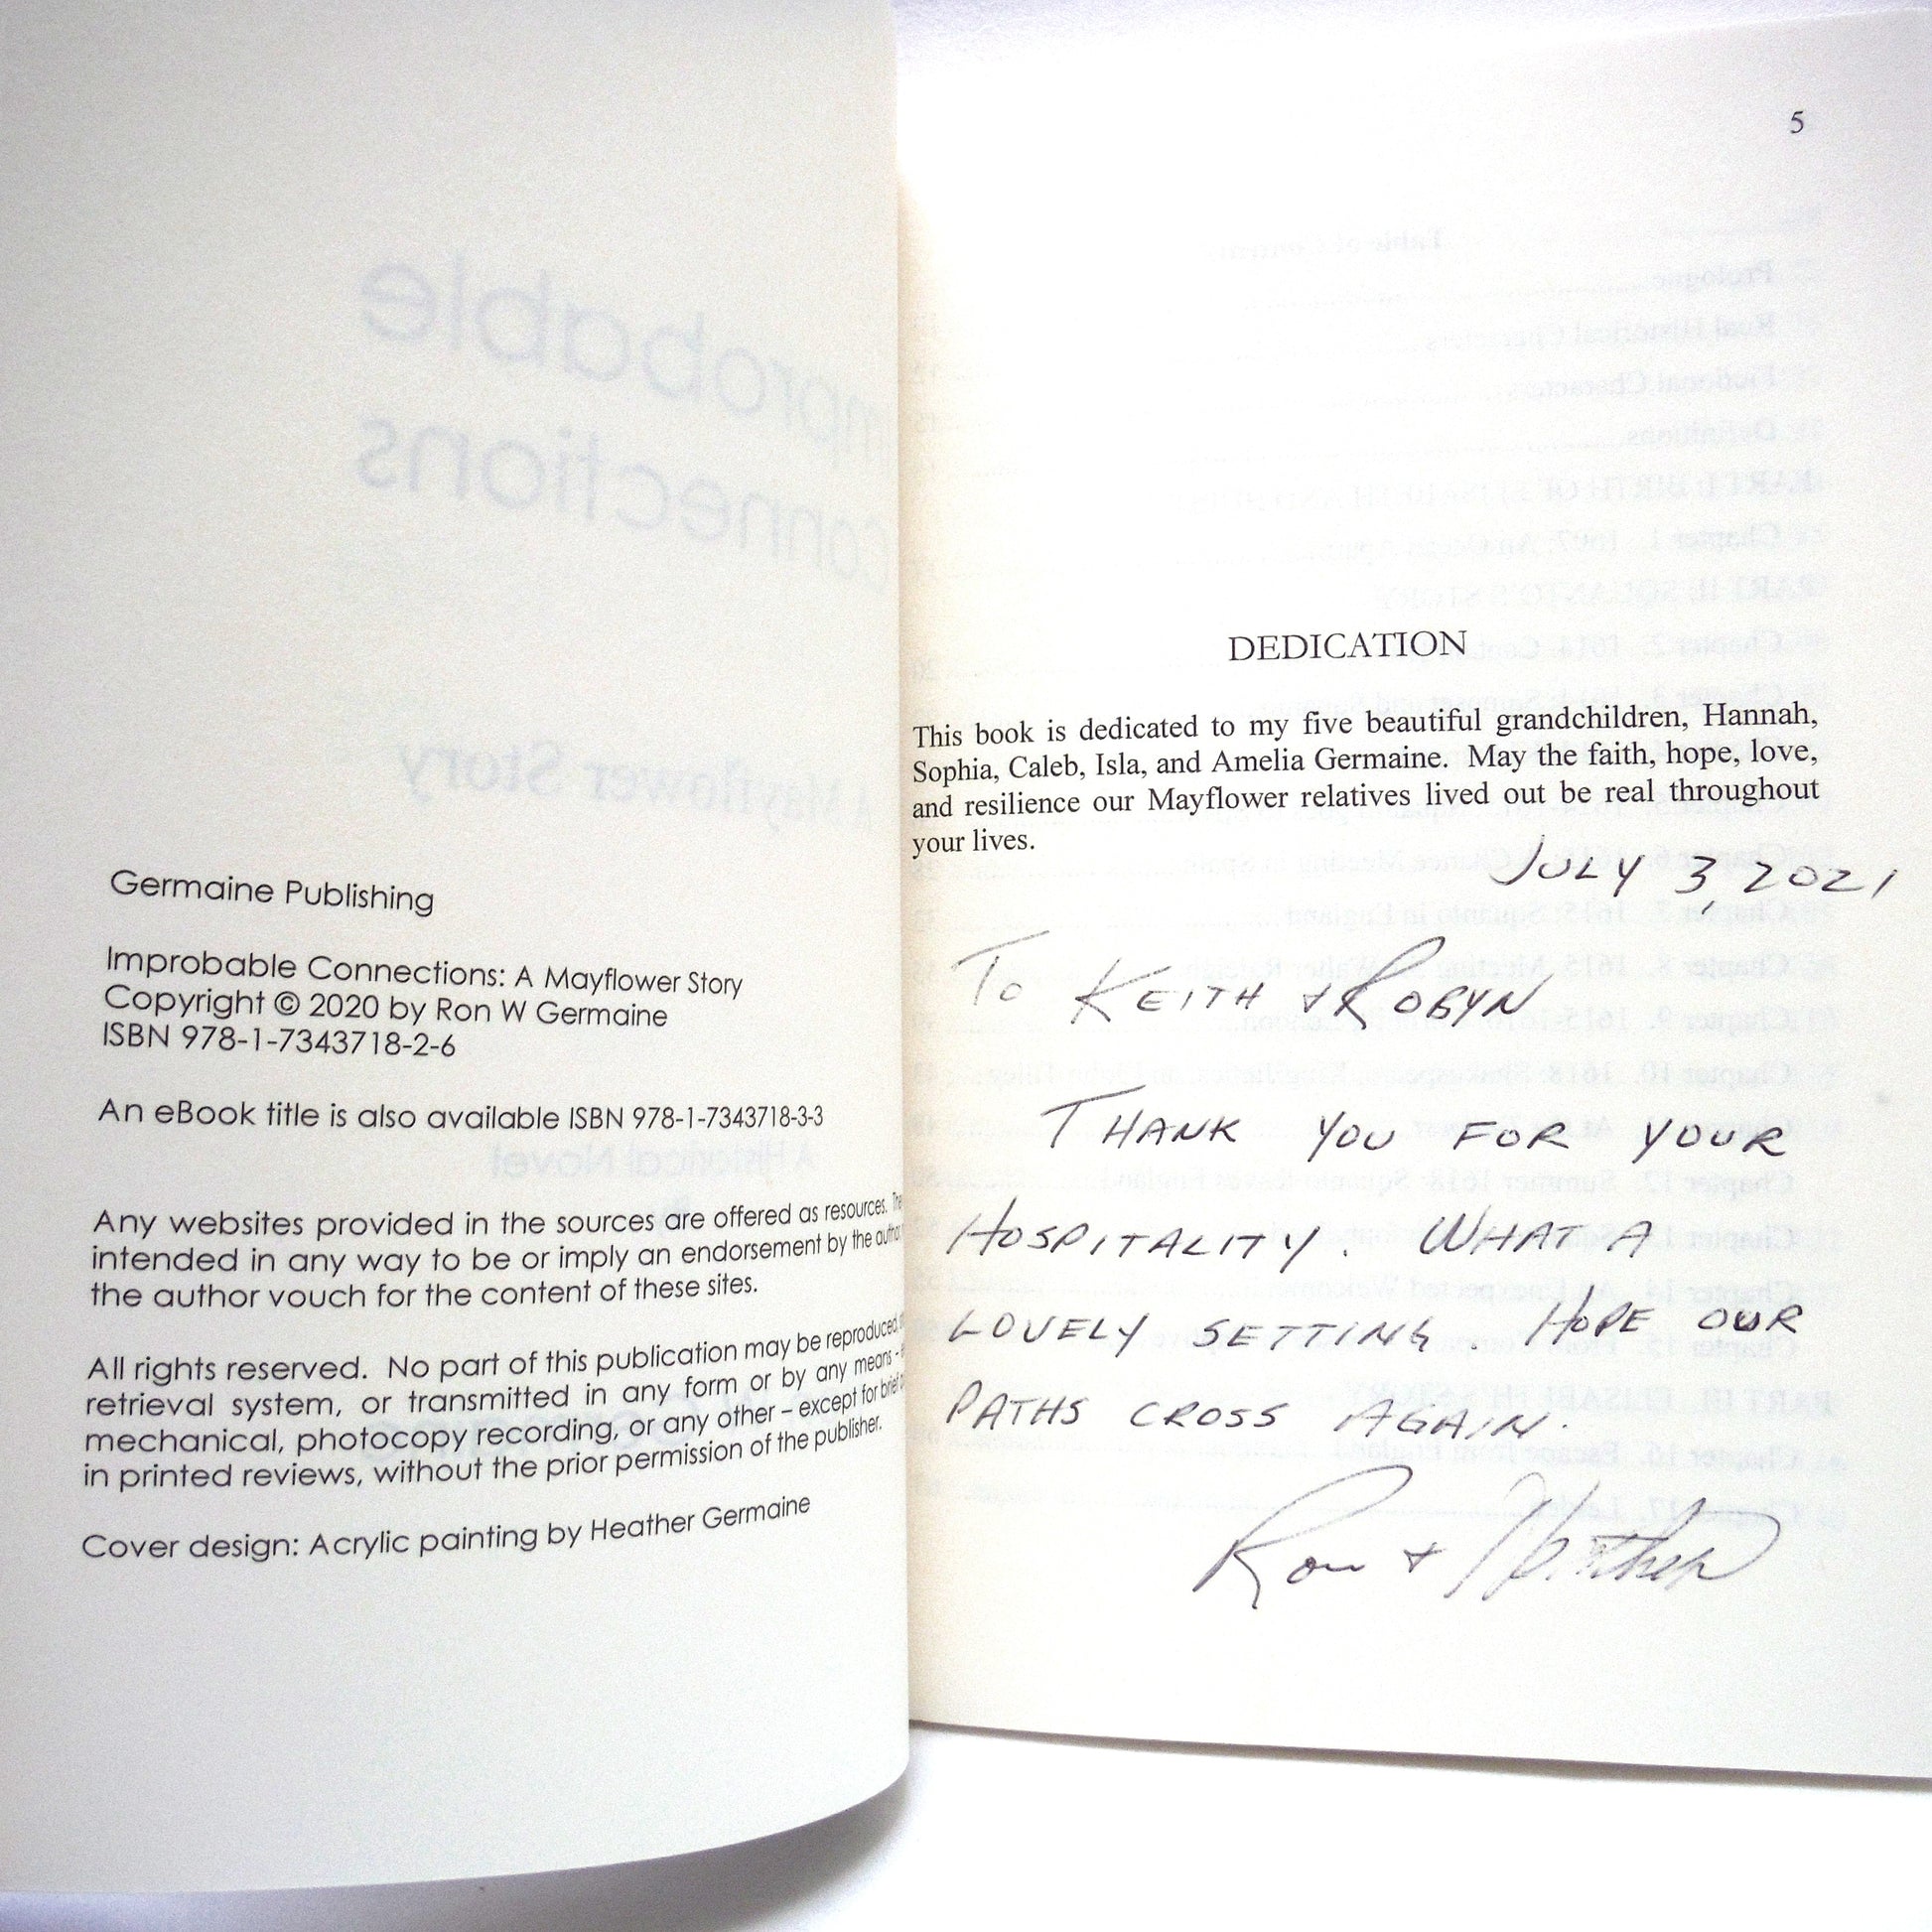 Germaine Publishing
Improbable Connections: A Mayflower Story
Copyright © 2020 by Ron W Germaine
ISBN 978-1-7343718-2-6
An eBook title is also available ISBN 978-1-7343718-3-3
Any websites provided in the sources are offered as resources.
intended in any way to be or imply an endorsement by the
the author vouch for the content of these sites.
All rights reserved. No part of this publication may be reproduced,
retrieval system, or transmitted in any form or by any means -
mechanical, photocopy recording, or any other – except for brief
in printed reviews, without the prior permission of the publisher.
Cover design: Acrylic painting by Heather Germaine
5
DEDICATION
This book is dedicated to my five beautiful grandchildren, Hannah,
Sophia, Caleb, Isla, and Amelia Germaine. May the faith, hope, love,
and resilience our Mayflower relatives lived out be real throughout
your lives.
JULY 3, 2021
TO KEITH + ROBYN
THANK YOU FOR YOUR
HOSPITALITY. WHAT A
LOVELY SETTING. HOPE OUR
PATHS CROSS AGAIN.
Ron + Heather